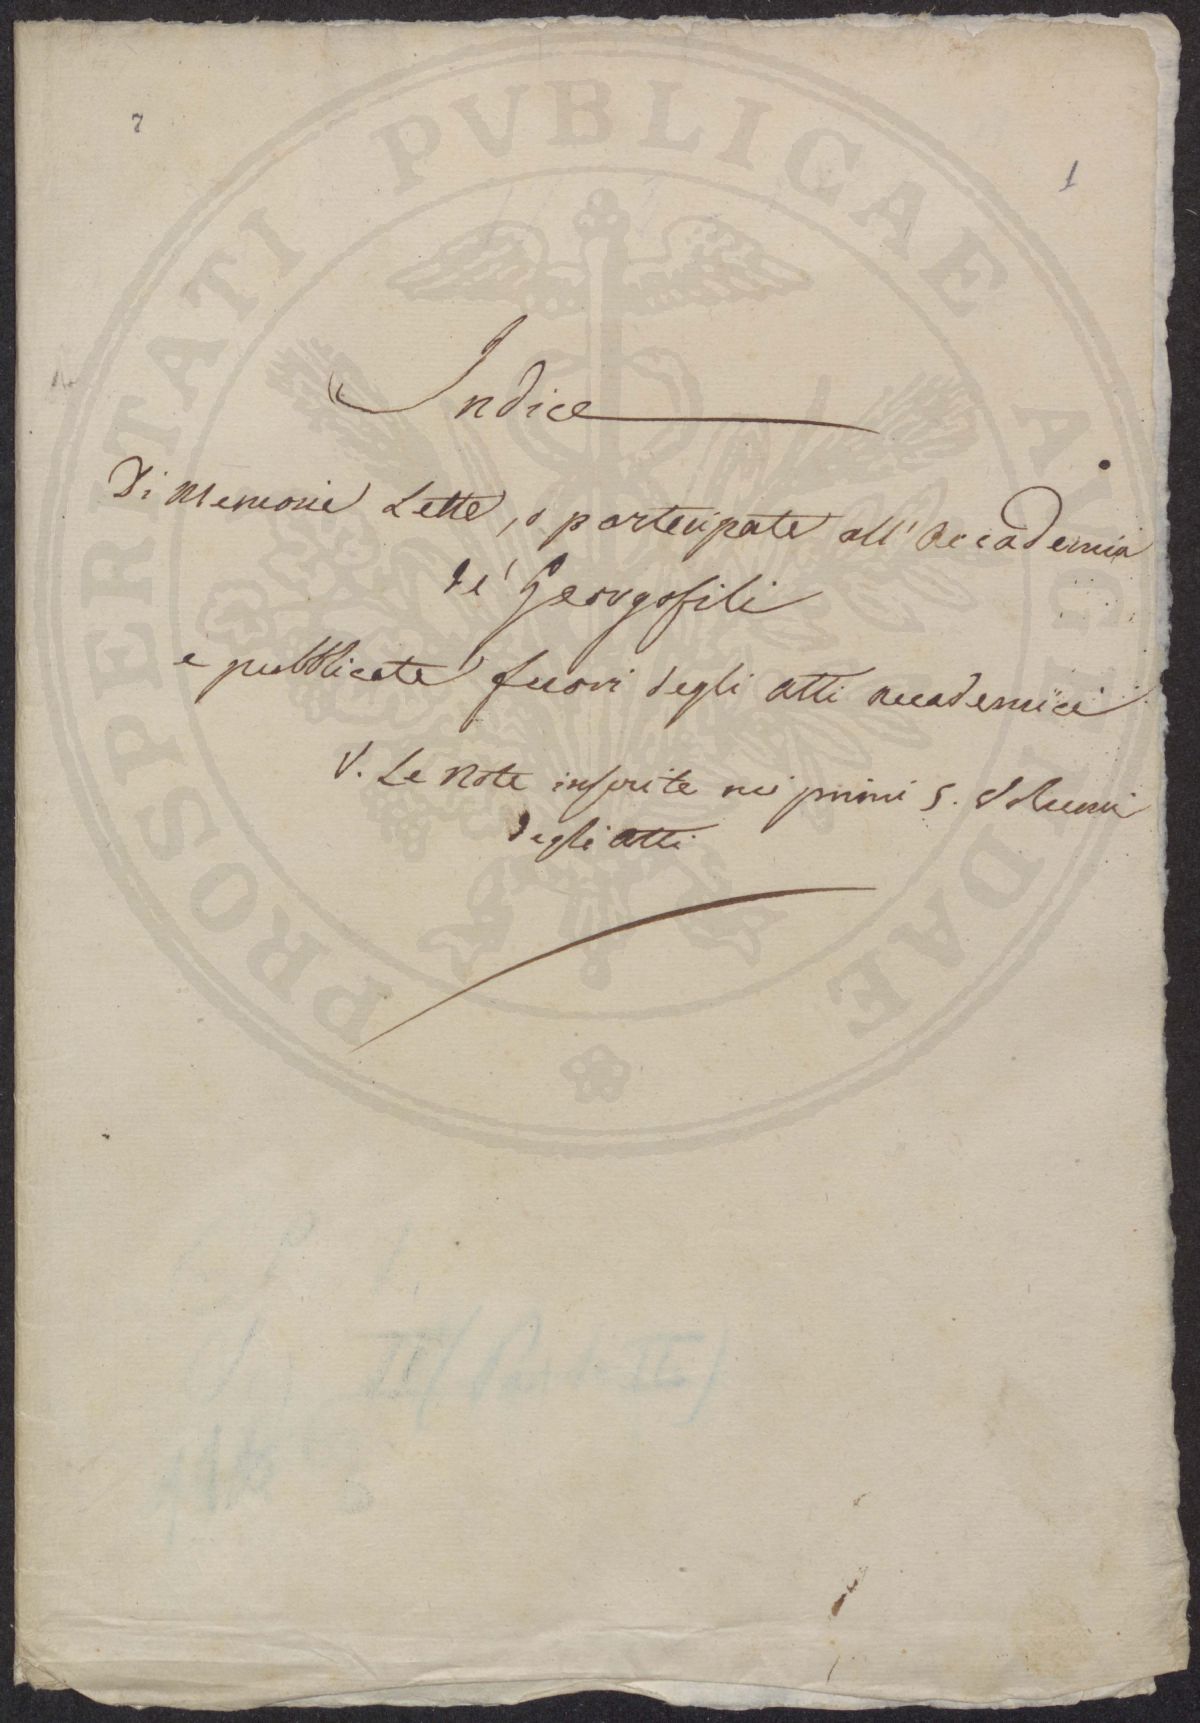 7
1
Indice
Di Memorie Lette, o partecipate all'Accademia
de' Georgofili
e pubblicate fuori degli atti accademici
V. Le Note inserite nei primi 5. Volumi
degli atti
II (Parte II)
PROSPERITATI PVBLICAE AVGENDAE